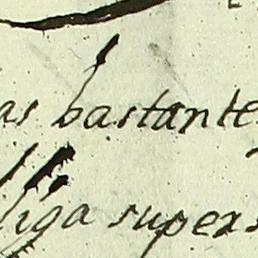 as bastante
liga supers